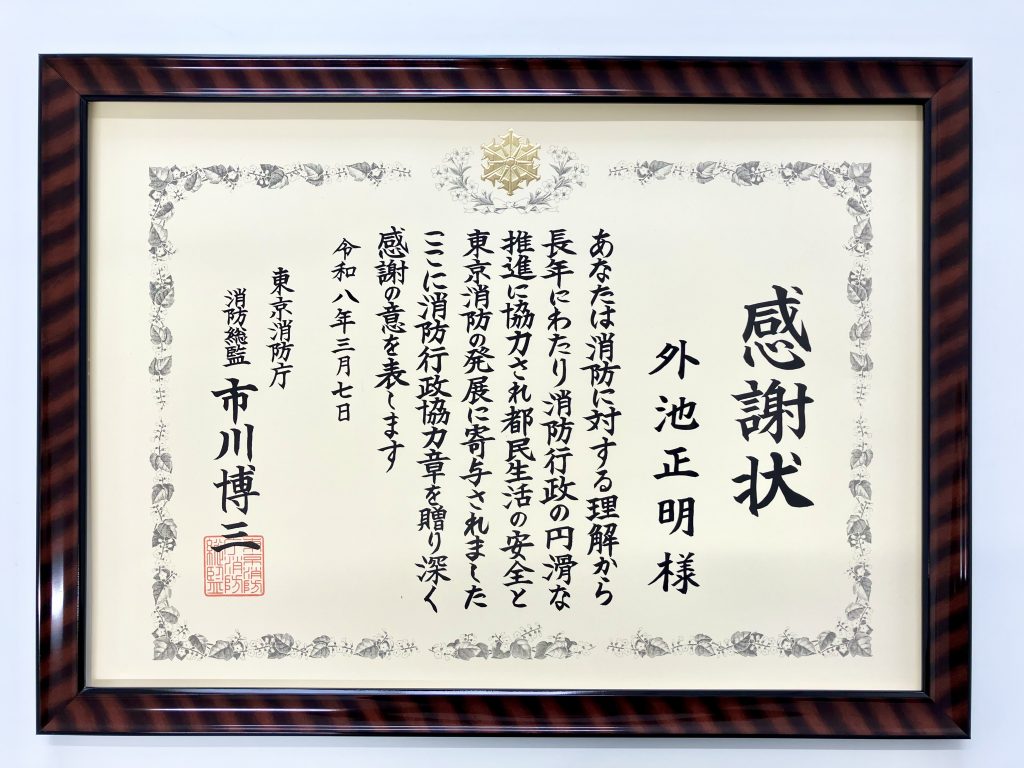 感謝状
外池正明様
あなたは消防に対する理解から
長年にわたり消防行政の円滑な
推進に協力され都民生活の安全と
東京消防の発展に寄与されました
ここに消防行政協力章を贈り深く
感謝の意を表します
令和八年三月七日
東京消防庁
消防総監 市川博三
東京消防
庁消防
総監